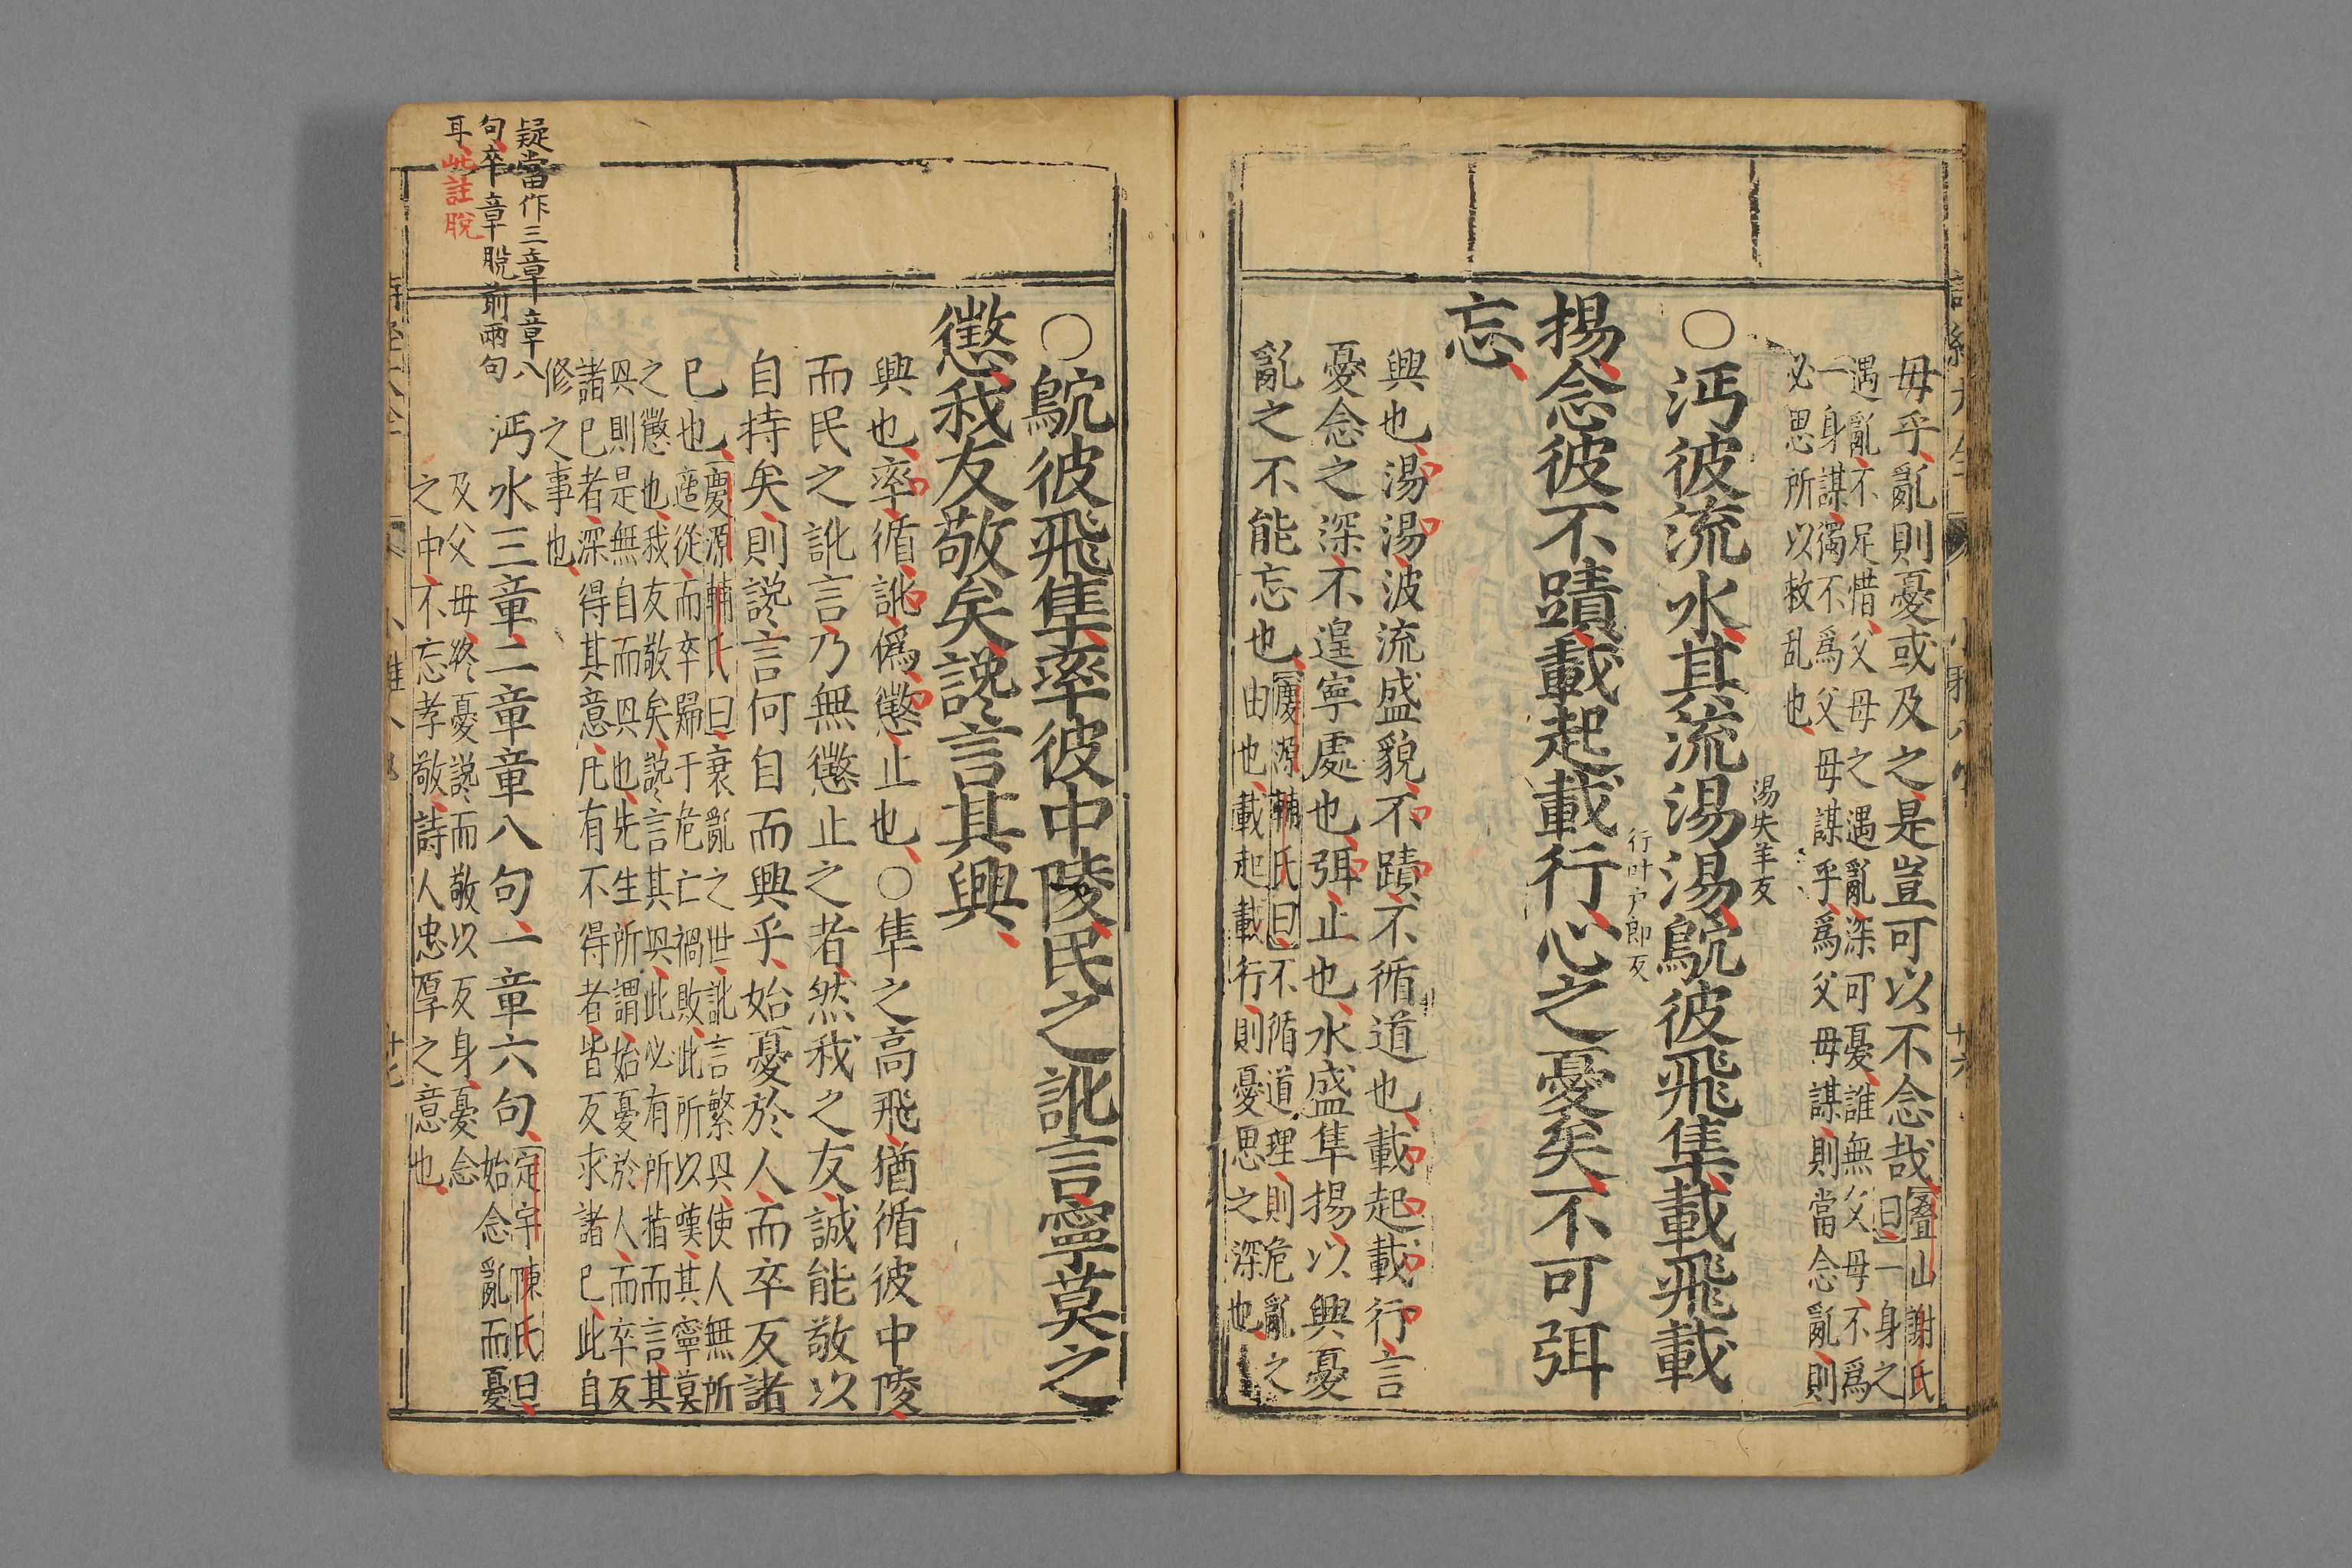 毋乎亂則憂或及之是豈可以不念哉
疊山謝氏
曰一身之
遇亂不足惜父母之遇亂深可憂誰無父母不爲
一身謀獨不爲父母謀乎爲父母謀則當念亂則
必思所以救乱也
○沔彼流水其流湯湯鴥彼飛隼載飛載
湯失羊反
揚念彼不蹟載起載行心之憂矣不可弭
行叶户郎反
忘
興也湯湯波流盛貌不蹟不循道也載起載行言
憂念之深不遑寧處也弭止也水盛隼揚以興憂
亂之不能忘也
慶源輔氏曰不循道理則危亂之
由也載起載行則憂思之深也
○鴥彼飛隼率彼中陵民之訛言寧莫之
懲我友敬矣讒言其興
興也率循訛僞懲止也○隼之高飛猶循彼中陵
而民之訛言乃無懲止之者然我之友誠能敬以
自持矣則讒言何自而興乎始憂於人而卒反諸
已也
慶源輔氏曰衰亂之世訛言繁興使人無所
適從而卒歸于危亡禍敗此所以嘆其寧莫
之懲也我友敬矣讒言其興此必有所指而言其
興則是無自而興也先生所謂始憂於人而卒反
諸已者深得其意凡有不得者皆反求諸已此自
修之事也
沔水三章二章章八句一章六句
定宇陳氏曰
始念亂而憂
及父母終憂讒而敬以反身憂念
之中不忘孝敬詩人忠厚之意也
疑當作三章章八
句卒章脫前兩句
耳此註脫